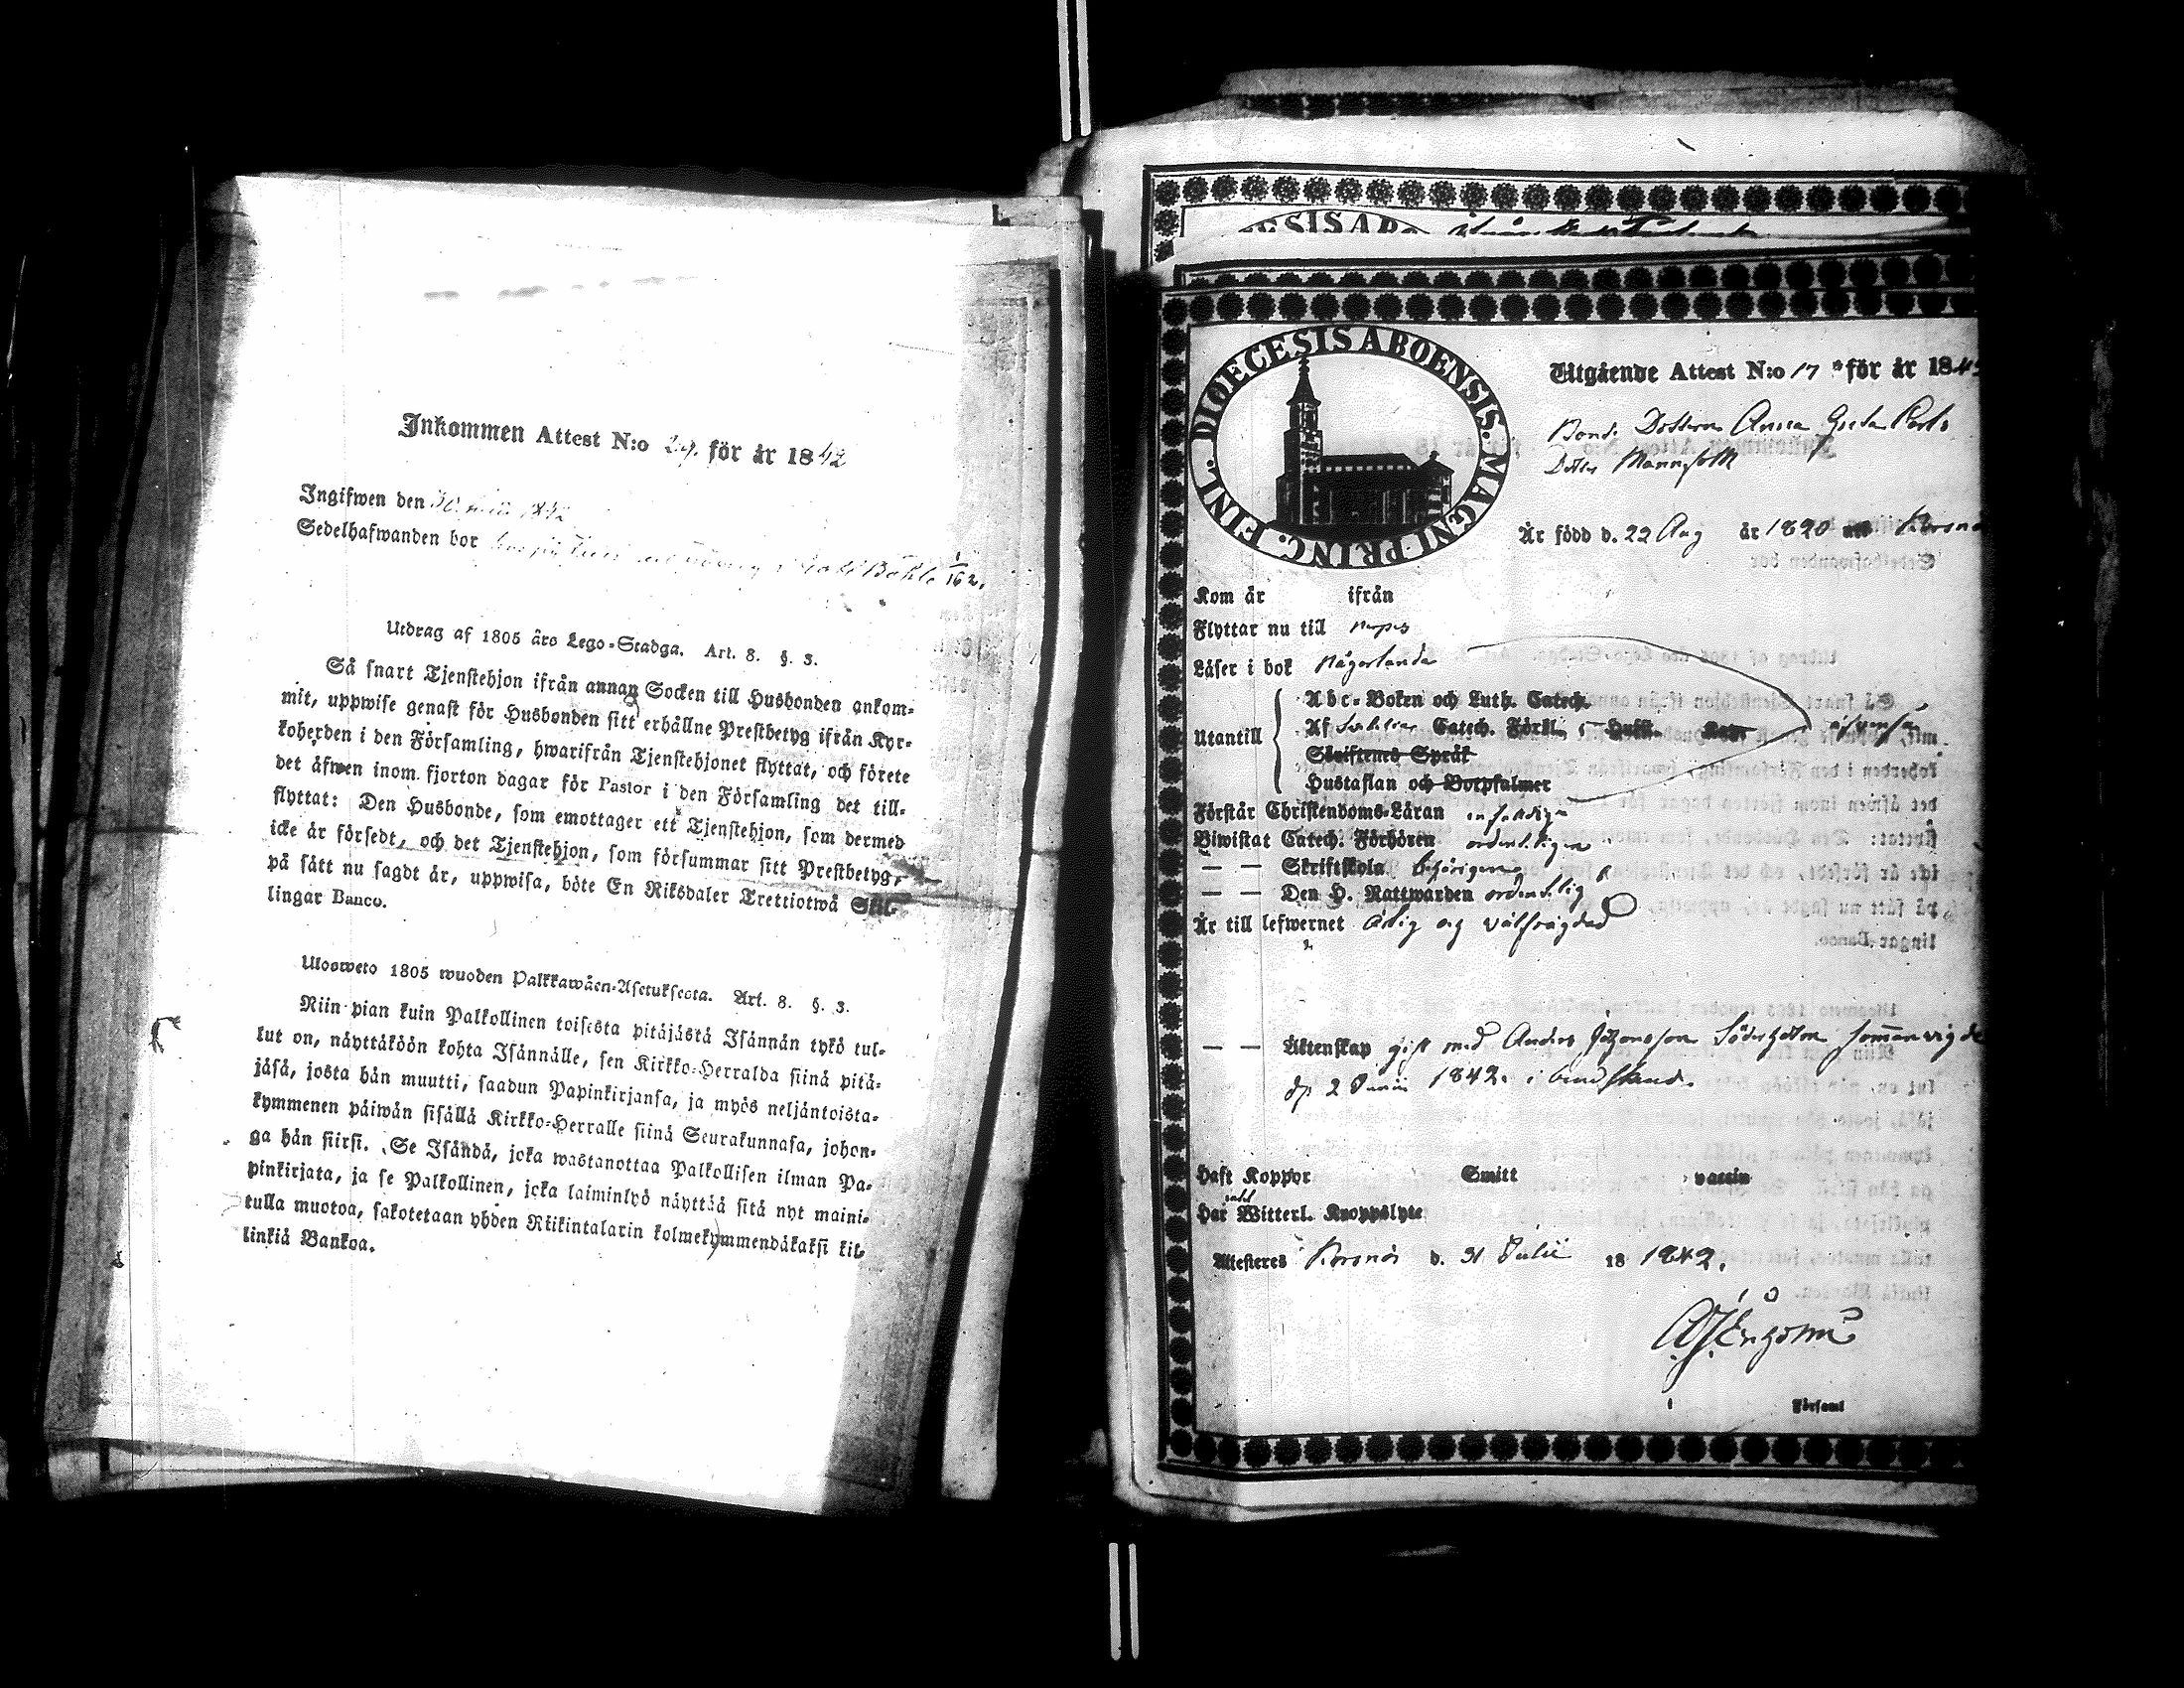 Inkommen Attest N:o 29. för år 1842
Ingifwen den 30 1842
Sedelhafwanden bor Böhle 1/162.
Utdrag af 1805 års Lego-Stadga. Art. 8. §. 3.
Så snart Tjenstehjon ifrån annan Socken till Husbonden ankom-
mit, uppwise genast för Husbonden sitt erhållne Prestbetyg ifrån Kyr-
koherden i den Församling, hwarifrån Tjenstehjonet flyttat, och förete
det äfwen inom fjorton dagar för Pastor i den Församling det till-
flyttat: Den Husbonde, som emottager ett Tjenstehjon, som dermed
icke är försedt, och det Tjenstehjon, som försummar sitt Prestbetyg,
på sätt nu sagdt är, uppwisa, böte En Riksdaler Trettiotwå Skil-
lingar Banco.
Ulosweto 1805 wuoden Palkkawäen-Asetuksesta. Art. 8. §. 3.
Niin pian kuin Palkollinen toisesta pitäjästä Isännän tykö tul-
lut on, näyttäköön kohta Isännälle, sen Kirkko-Herralda siinä pitä-
jäsä, josta hän muutti, saadun Papinkirjansa, ja myös neljäntoista-
kymmenen päiwän sisällä Kirkko-Herralle siinä Seurakunnasa, johon-
ga hän siirsi. Se Isändä, joka wastanottaa Palkollisen ilman Pa-
pinkirjata, ja se Palkollinen, joka laiminlyö näyttää sitä nyt maini-
tulla muotoa, sakotetaan yhden Riikintalarin kolmekymmendäkaksi kil-
linkiä Bankoa.
DIOECESIS ABOENSIS. MAGNI PRINC. FINL.
Utgående Attest N:o 17 för år 184
Bond. Dottren Anna Greta Carls
Dotter Mannfolk
Är född d. 22 Aug år 1820 Korsnäs
Kom år ifrån
Flyttar nu till
Läser i bok någorlunda
Utantill
Abc-Boken och Luth. Catech.
Af Catech. Förkl.
Skriftenes Språk
Hustaflan och Botpsalmer
Förstår Christendoms-Läran
Biwistat Catech. Förhören ordentligen
— — Skriftskola behörigen
— — Den H. Nattwarden ordentlig
Är till lefwernet ärlig och välfrägdad
— — Äktenskap gift med Anders Söderholm sammanvigde
d. 2 Junii 1842. i
Haft Koppor Smitt vaccin
Har intet Witterl. Kroppslyte
Attesteres Korsnäs d. 31 Julii 18 1842.
Församl